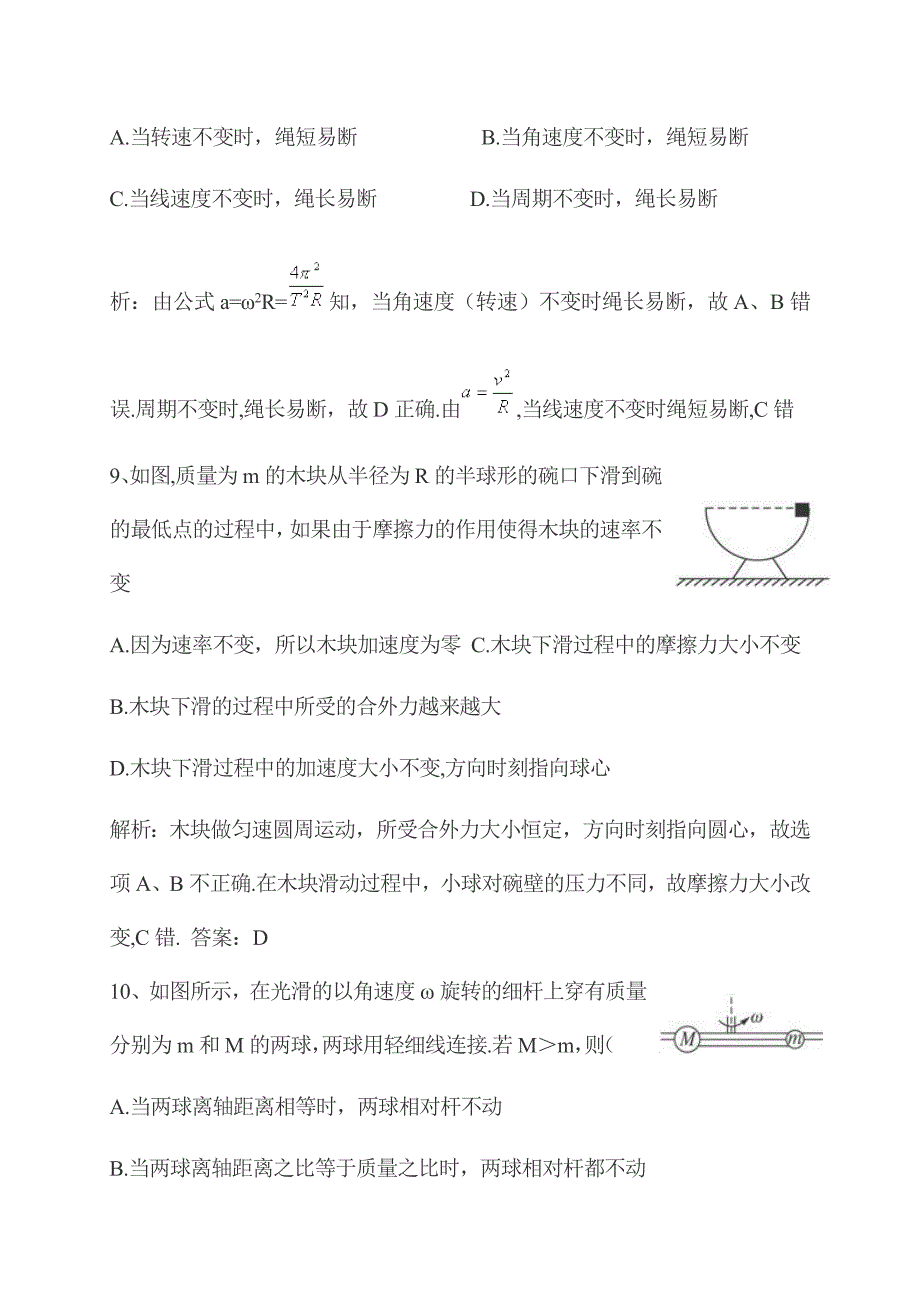 A.当转速不变时，绳短易断 B.当角速度不变时，绳短易断
C.当线速度不变时，绳长易断 D.当周期不变时，绳长易断
析：由公式 a=ω²R=4π²/T²R 知，当角速度（转速）不变时绳长易断，故 A、B 错
误.周期不变时,绳长易断，故 D 正确.由a=v²/R,当线速度不变时绳短易断,C 错
9、如图,质量为 m 的木块从半径为 R 的半球形的碗口下滑到碗
的最低点的过程中，如果由于摩擦力的作用使得木块的速率不
变
A.因为速率不变，所以木块加速度为零 C.木块下滑过程中的摩擦力大小不变
B.木块下滑的过程中所受的合外力越来越大
D.木块下滑过程中的加速度大小不变,方向时刻指向球心
解析：木块做匀速圆周运动，所受合外力大小恒定，方向时刻指向圆心，故选
项 A、B 不正确.在木块滑动过程中，小球对碗壁的压力不同，故摩擦力大小改
变,C 错. 答案：D
10、如图所示，在光滑的以角速度 ω 旋转的细杆上穿有质量
分别为 m 和 M 的两球，两球用轻细线连接.若 M＞m，则(
ω
M m
A.当两球离轴距离相等时，两球相对杆不动
B.当两球离轴距离之比等于质量之比时，两球相对杆都不动